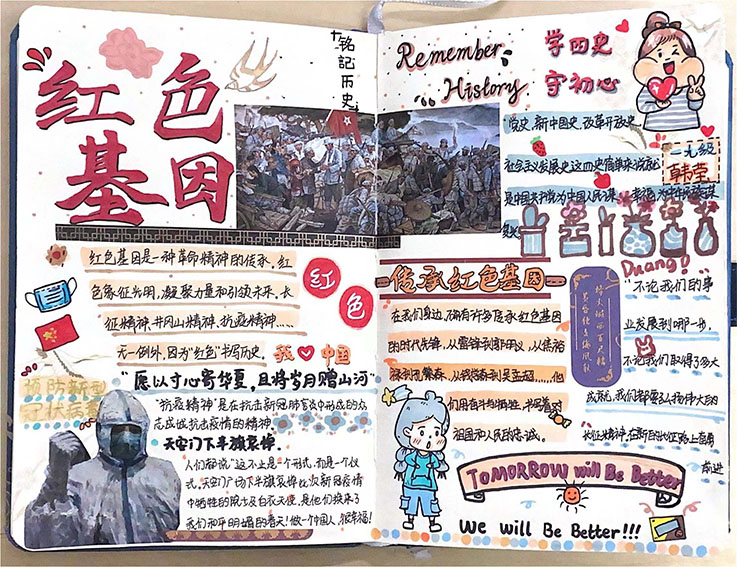 红色
基因
铭记历史
红色基因是一种革命精神的传承,红
色象征光明,凝聚力量和引领未来。长
征精神、井冈山精神、抗疫精神……
无一例外,因为"红色"书写历史。
红
色
我 中国
"愿以寸心寄华夏,且将岁月赠山河"
预防新型
冠状病毒
"抗疫精神"是在抗击新冠肺炎中形成的众
志成城抗击疫情的精神
天安门下半旗哀悼。
人们都说"这不止是一个形式,而是一个仪
式。天安门广场下半旗哀悼此次新冠疫情
中牺牲的烈士及白衣天使,是他们换来了
我们和平明媚的春天!做一个中国人,很幸福!
Remember
History
学四史
守初心
党史、新中国史、改革开放史、
社会主义发展史这四史简单来说就
是中国共产党为中国人民谋幸福,为中华民族谋
复兴
韩莹
传承红色基因
在我们身边,确有许多传承红色基因
的时代先锋,从雷锋到郭明义,从焦裕
禄到孔繁森,从钱学森到吴孟超……他
们用奋斗与牺牲,书写着对
祖国和人民的忠诚。
Duang!
"不论我们的事
业发展到哪一步,
不论我们取得了多大
成就,我们都要弘扬伟大的
长征精神,在新的长征路上奋勇
前进
TOMORROW will Be Better
We will Be Better!!!